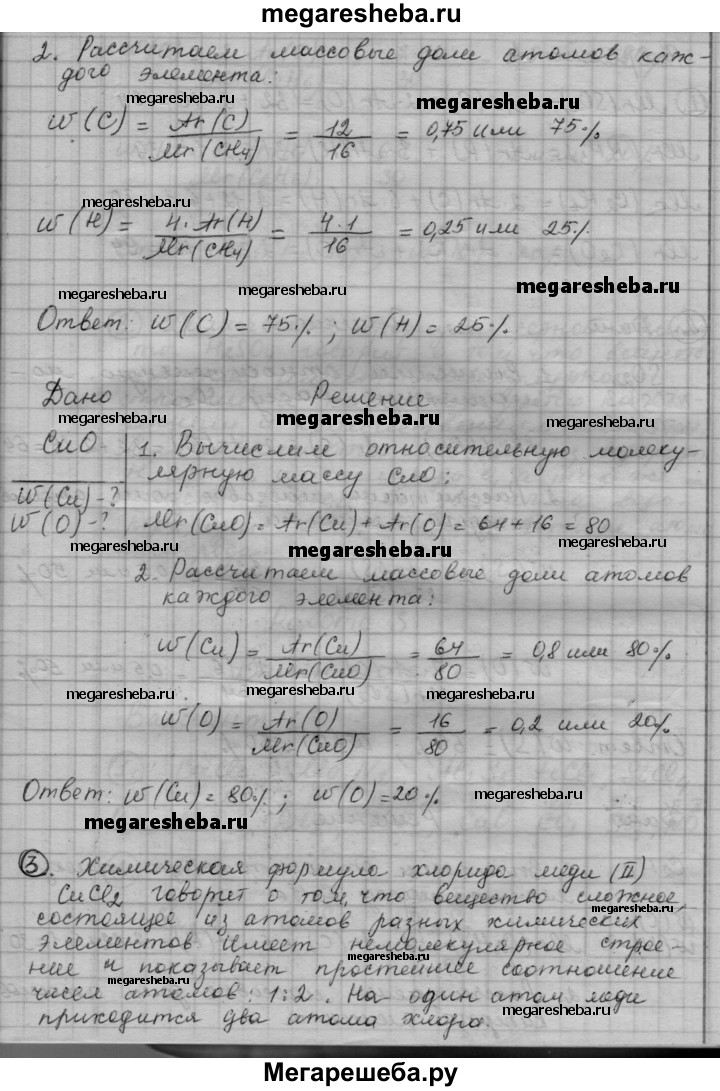 megaresheba.ru
2. Рассчитаем массовые доли атомов каж-
дого элемента:
megaresheba.ru megaresheba.ru
w (C) = Ar(C) / Mr(CH4) = 12 / 16 = 0,75 или 75%
megaresheba.ru
w (H) = 4·Ar(H) / Mr(CH4) = 4·1 / 16 = 0,25 или 25%
megaresheba.ru megaresheba.ru
Ответ: w(C) = 75%; w(H) = 25%.
Дано Решение
megaresheba.ru megaresheba.ru megaresheba.ru
CuO 1. Вычислим относительную молеку-
лярную массу CuO:
w(Cu)-?
w(O)-? Mr(CuO) = Ar(Cu) + Ar(O) = 64 + 16 = 80
megaresheba.ru megaresheba.ru
2. Рассчитаем массовые доли атомов
каждого элемента:
w(Cu) = Ar(Cu) / Mr(CuO) = 64 / 80 = 0,8 или 80%
megaresheba.ru megaresheba.ru
w(O) = Ar(O) / Mr(CuO) = 16 / 80 = 0,2 или 20%
Ответ: w(Cu) = 80%; w(O) = 20%
megaresheba.ru
megaresheba.ru
3. Химическая формула хлорида меди (II)
CuCl2 говорит о том, что вещество сложное,
megaresheba.ru
состоящее из атомов разных химических
элементов имеет немолекулярное строе-
megaresheba.ru
ние и показывает простейшее соотношение
megaresheba.ru
чисел атомов: 1:2. На один атом меди
megaresheba.ru
приходится два атома хлора.
megaresheba.ru
Мегарешеба.ру